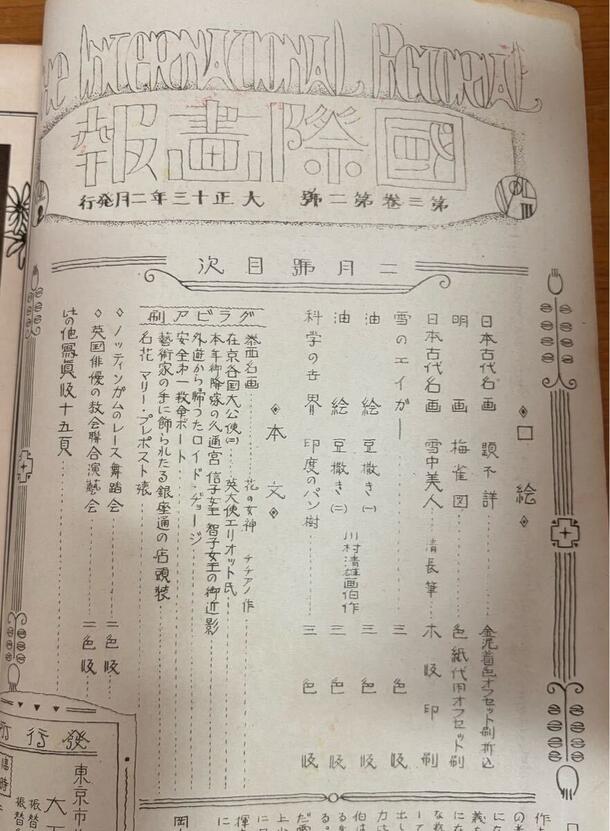 The INTERNATIONAL PICTORIAL
國際畫報
第三卷第二號 大正十三年二月發行
二月號目次
◇口絵◇
日本古代名画 題不詳………金泥着色オフセット刷折込
明画 梅雀図………色紙代用オフセット刷
日本古代名画 雪中美人 清長筆 木版印刷
雪のエイガー………三色版
油絵 豆撒き(一) 川村清雄画伯作 三色版
油絵 豆撒き(二) 三色版
科学の世界 印度のパン樹………三色版
◇本文◇
グラビア刷
泰西名画………花の女神 チチアノ作
在京各国大公使(二)…英大使エリオット氏
本年御降嫁の久邇宮信子女王智子女王の御近影
外遊から帰つたロイド・ヂョージ
安全第一救命ボート
藝術家の手に飾られたる銀座通の店頭装
名花マリー・プレボスト孃
◇ノッティンガムのレース舞踏会………二色版
◇英国俳優の教会聯合演藝会………二色版
其の他寫眞版十五頁
發行所
東京市
振替
振替